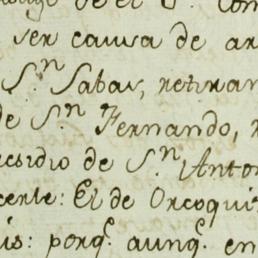 ser causa de ar
S.ⁿ Sabas, retiran
de S.ⁿ Fernando,
residio de S.ⁿ Anton
cente: El de Orcoquis
is: porq.ᵉ aunq.ᵉ en